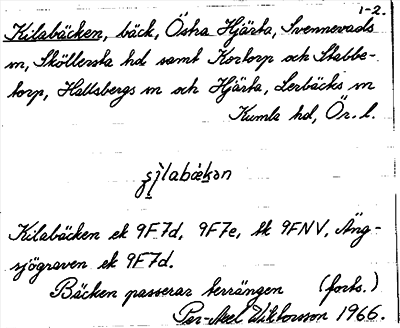 1-2.
Kilabäcken, bäck, Östra Hjärta, Svennevads
sn, Sköllersta hd samt Kortorp och Stabbe-
torp, Hallsbergs sn och Hjärta, Lerbäcks sn
Kumla hd, Ör. l.
Kilabäcken ek 9F7d, 9F7e, tk 9FNV, Äng-
sjögraven ek 9F7d.
Bäcken passerar terrängen (forts.)
Per-Axel Wiktorsson 1966.